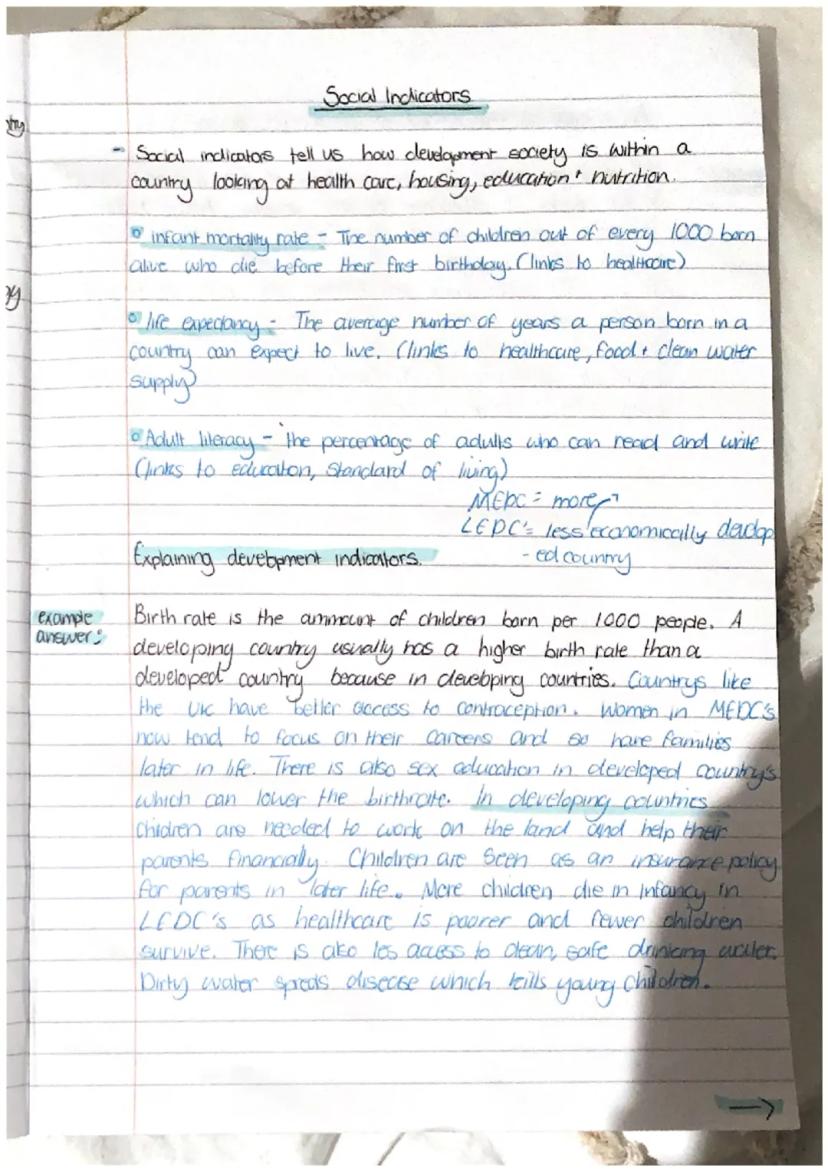 Social Indicators
- Social indicators tell us how development society is within a
country looking at health care, housing, education + nutrition.
infant mortality rate - The number of children out of every 1000 born
alive who die before their first birthday. (links to healthcare)
life expectancy - The average number of years a person born in a
country can expect to live. (links to healthcare, food + clean water
supply)
Adult literacy - the percentage of adults who can read and write
(links to education, standard of living)
MEDC = more
LEDC's = less economically develop
Explaining development indicators. - ed country
example answer: Birth rate is the ammount of children born per 1000 people. A
developing country usually has a higher birth rate than a
developed country because in developing countries. Countrys like
the UK have better access to contraception. Women in MEDC's
now tend to focus on their careers and so have families
later in life. There is also sex education in developed country's
which can lower the birthrate. In developing countries
Children are needed to work on the land and help their
parents financially. Children are seen as an insurance policy
for parents in later life. More children die in infancy in
LEDC's as healthcare is poorer and fewer children
survive. There is also les access to clean, safe drinking water.
Dirty water spreds disease which kills young children.